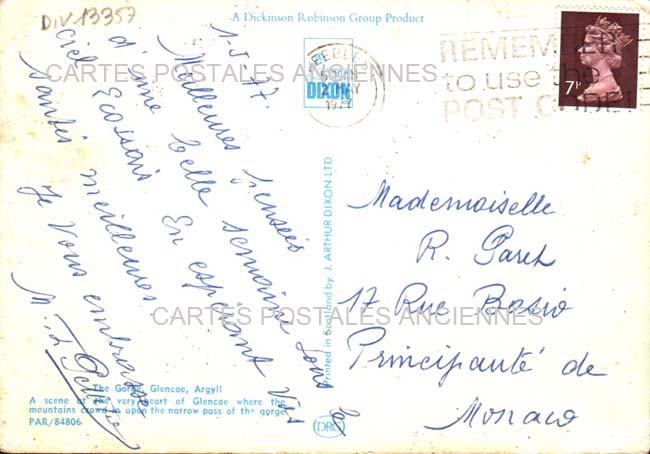 DIV.13357
A Dickinson Robinson Group Product
1-5-77.
Meilleures pensées
d'une belle semaine sous le
ciel Ecossais. En espérant vos
santés meilleures
Je vous embrasse
M.
CARTES POSTALES ANCIENNES
DIXON
2 MY
1977
REMEMBER
to use the
POST CODE
7P
Printed in Scotland by J. ARTHUR DIXON LTD.
Mademoiselle
R.
17 Rue Bosio
Principauté de
Monaco
CARTES POSTALES ANCIENNES
The Gorge, Glencoe, Argyll
A scene at the very heart of Glencoe where the
mountains crowd in upon the narrow pass of the gorge
PAR/84806
DRG